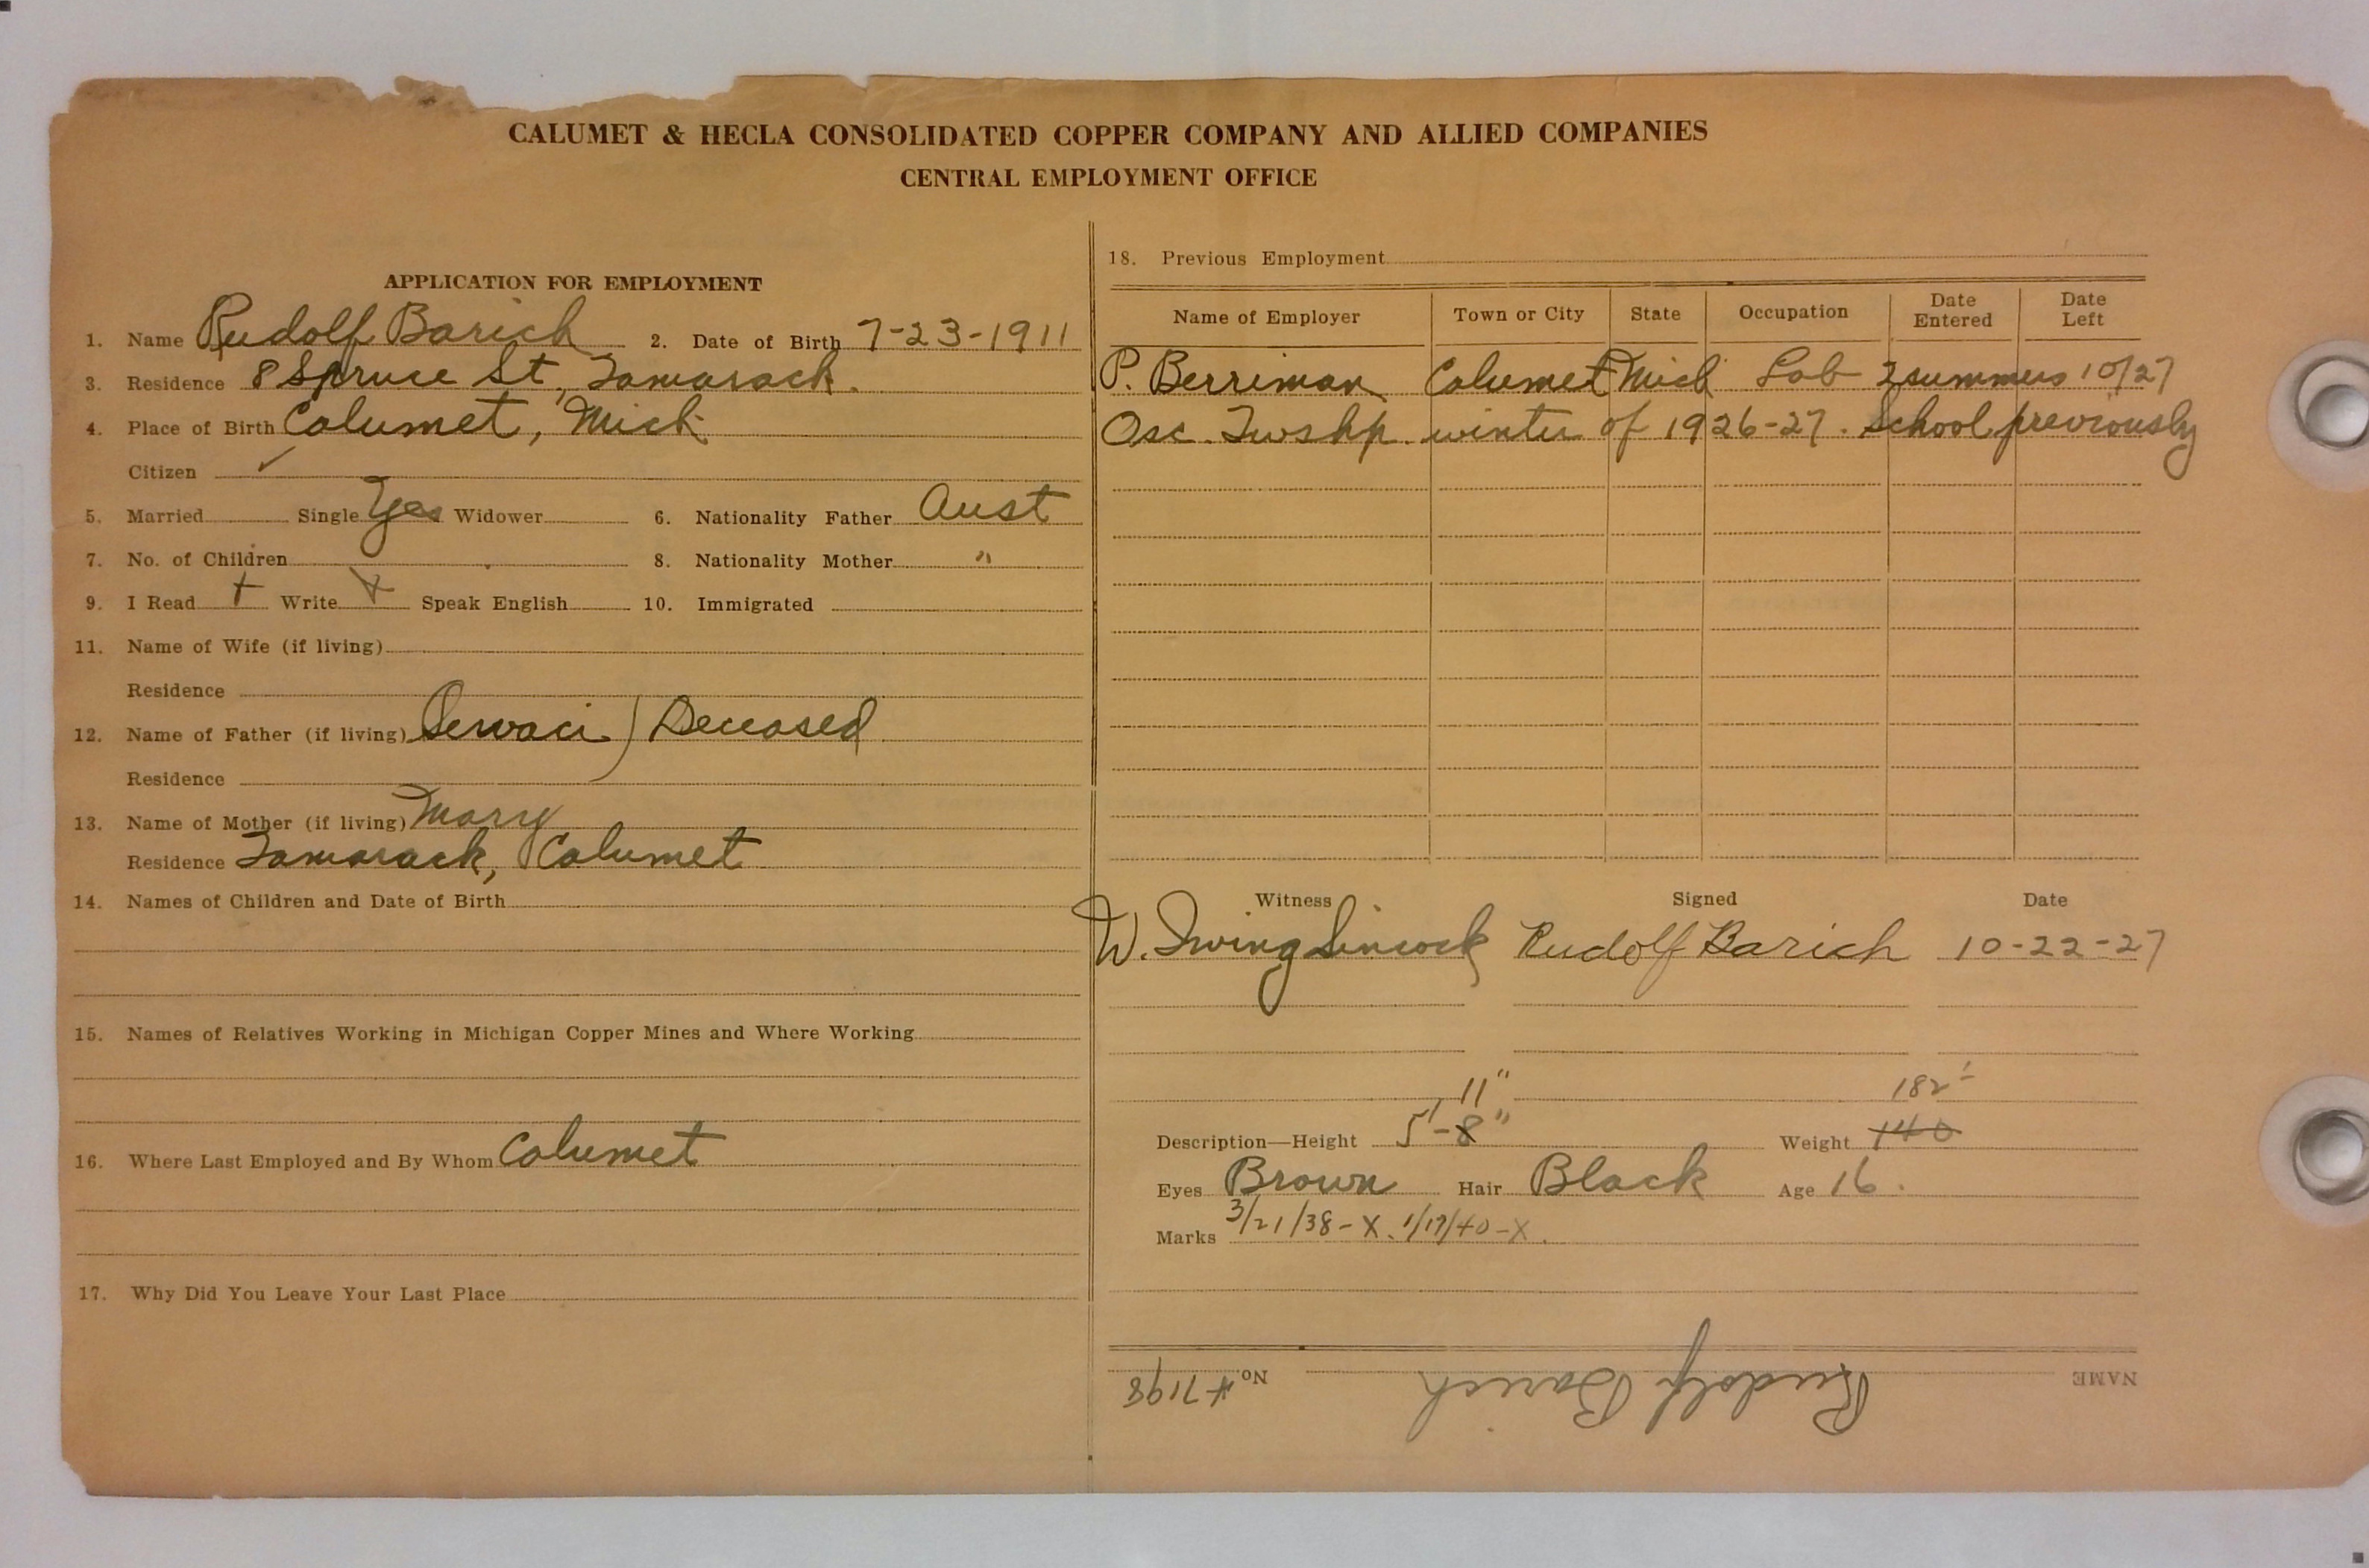 CALUMET & HECLA CONSOLIDATED COPPER COMPANY AND ALLIED COMPANIES
CENTRAL EMPLOYMENT OFFICE
APPLICATION FOR EMPLOYMENT
1. Name Rudolf Barich 2. Date of Birth 7-23-1911
3. Residence 8 Spruce St., Tamarack.
4. Place of Birth Calumet, Mich
Citizen ✓
5. Married Single Yes Widower 6. Nationality Father Aust
7. No. of Children 8. Nationality Mother "
9. I Read + Write + Speak English 10. Immigrated
11. Name of Wife (if living)
Residence
12. Name of Father (if living) Servaci ) Deceased
Residence
13. Name of Mother (if living) Mary
Residence Tamarack, Calumet
14. Names of Children and Date of Birth
15. Names of Relatives Working in Michigan Copper Mines and Where Working
16. Where Last Employed and By Whom Calumet
17. Why Did You Leave Your Last Place
18. Previous Employment
Name of Employer Town or City State Occupation Date Entered Date Left
P. Berriman Calumet Mich Lab 2 summers 10/27
Osc. Twshp. winter of 1926-27. School previously
Witness Signed Date
W. Irving Sincock Rudolf Barich 10-22-27
11" 182
Description—Height 5'-8" Weight 140
Eyes Brown Hair Black Age 16.
Marks 3/21/38-X. 1/17/40-X.
NAME Rudolf Barich No. #7198